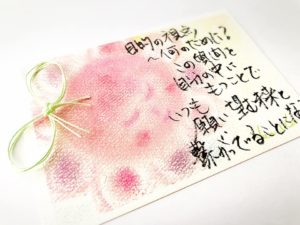 目的の視点
〜何のために?
この瞬間と
自分の中に
もつことで
いつも
願い望む未来と
繋がっていることにな